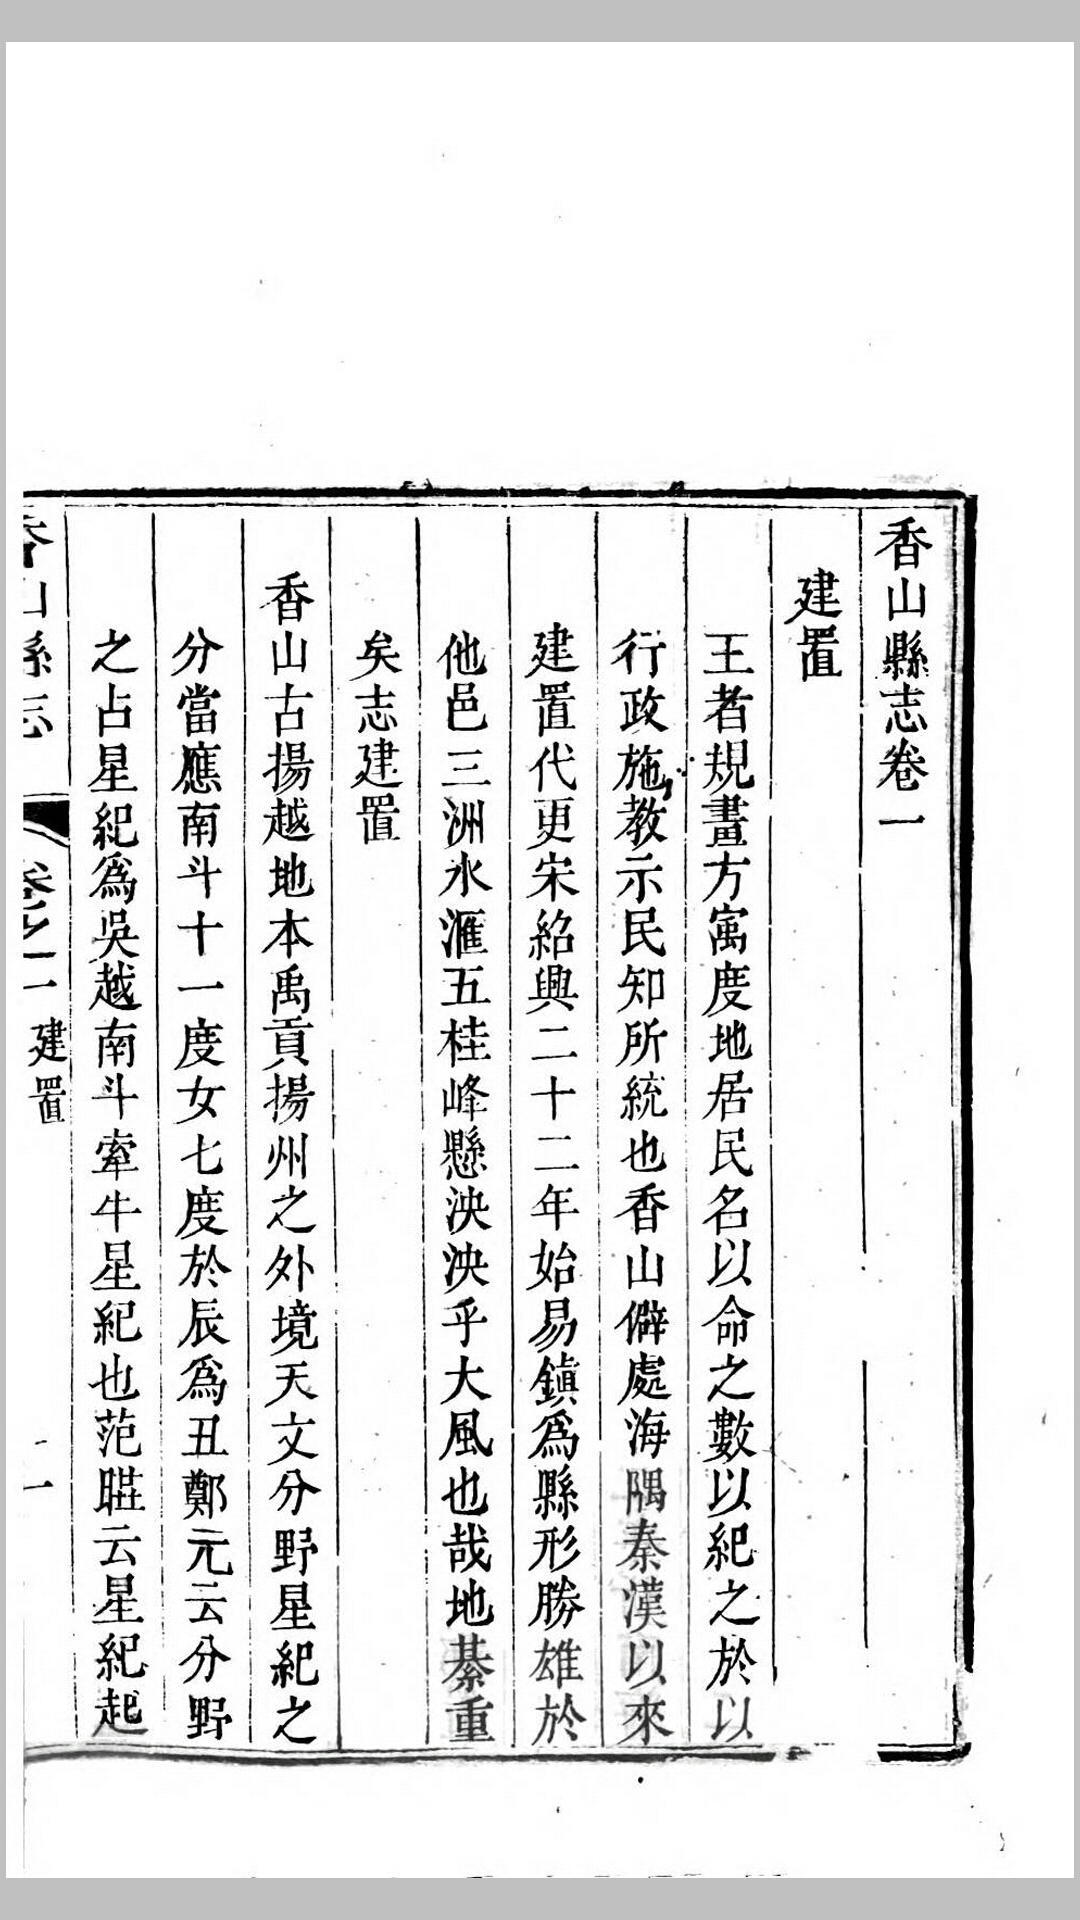 香山縣志卷一
建置
王者規畫方寓度地居民名以命之數以紀之於以
行政施教示民知所統也香山僻處海隅秦漢以來
建置代更宋紹興二十二年始易鎮爲縣形勝雄於
他邑三洲水滙五桂峰懸泱泱乎大風也哉地綦重
矣志建置
香山古揚越地本禹貢揚州之外境天文分野星紀之
分當應南斗十一度女七度於辰爲丑鄭元云分野
之占星紀爲吳越南斗牽牛星紀也范曄云星紀起
香山縣志 卷之一 建置 一